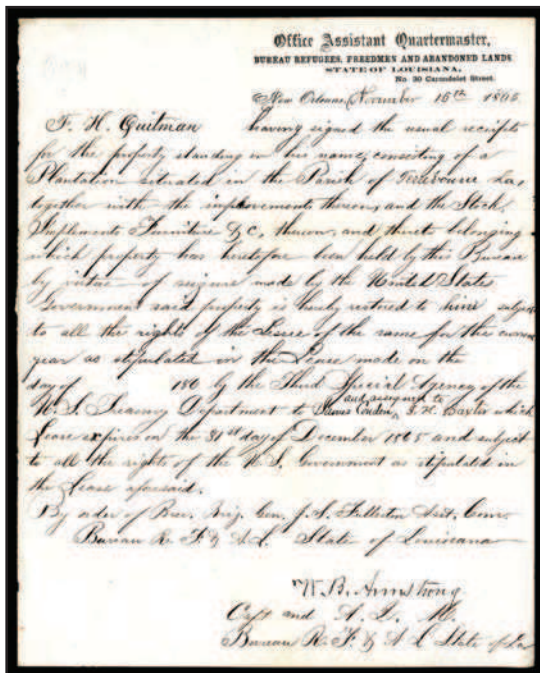 Office Assistant Quartermaster,
BUREAU REFUGEES, FREEDMEN AND ABANDONED LANDS
STATE OF LOUISIANA,
No. 30 Carondelet Street.
New Orleans, November 15th 1865
F. H. Quitman having signed the usual receipts
for the property standing in his name, consisting of a
Plantation situated in the Parish of Terrebonne La,
together with the improvements thereon, and the Stock,
Implements Furniture &c, thereon, and thereto belonging
which property has heretofore been held by this Bureau
by virtue of seizure made by the United States
Government said property is hereby restored to him subject
to all the rights of the Lessee of the same for the current
year as stipulated in the Lease made on the
day of 186 by the Third Special Agency of the
and assigned to
U.S. Treasury Department to James Conden, J. H. Baxter which
Lease expires on the 31st day of December 1865 and subject
to all the rights of the U.S. Government as stipulated in
the Lease aforesaid.
By order of Brev. Brig. Gen. J. S. Fullerton Asst. Com.
Bureau R. F. & A. L. State of Louisiana
W. B. Armstrong
Capt and A. Q. M.
Bureau R. F. & A L State of La